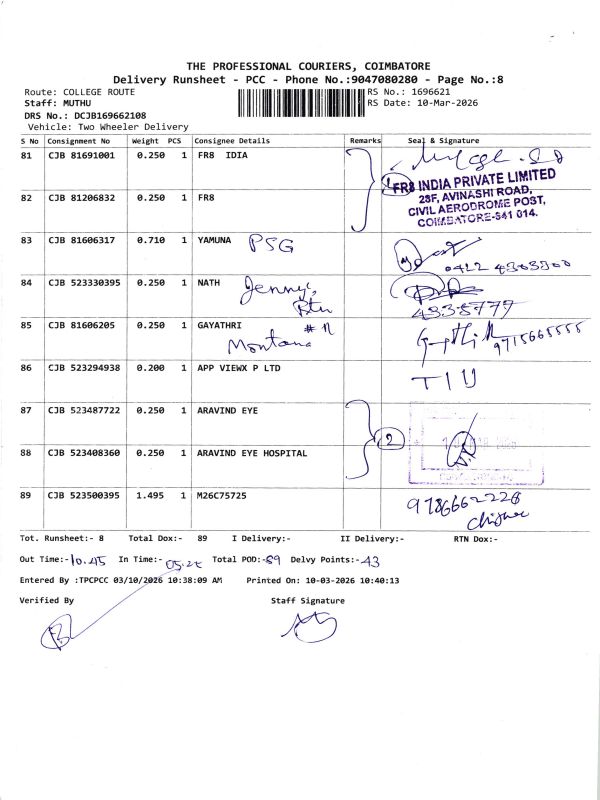 THE PROFESSIONAL COURIERS, COIMBATORE
Delivery Runsheet - PCC - Phone No.:9047080280 - Page No.:8
Route: COLLEGE ROUTE RS No.: 1696621
Staff: MUTHU RS Date: 10-Mar-2026
DRS No.: DCJB169662108
Vehicle: Two Wheeler Delivery
S No Consignment No Weight PCS Consignee Details Remarks Seal & Signature
81 CJB 81691001 0.250 1 FR8 IDIA
FR8 INDIA PRIVATE LIMITED
28F, AVINASHI ROAD,
CIVIL AERODROME POST,
COIMBATORE-641 014.
82 CJB 81206832 0.250 1 FR8
83 CJB 81606317 0.710 1 YAMUNA PSG
0422 4363500
84 CJB 523330395 0.250 1 NATH Jenny's
4335779
85 CJB 81606205 0.250 1 GAYATHRI
Montana 9715665555
86 CJB 523294938 0.200 1 APP VIEWX P LTD
87 CJB 523487722 0.250 1 ARAVIND EYE
2
88 CJB 523408360 0.250 1 ARAVIND EYE HOSPITAL
89 CJB 523500395 1.495 1 M26C75725 9786662228
Tot. Runsheet:- 8 Total Dox:- 89 I Delivery:- II Delivery:- RTN Dox:-
Out Time:-10.45 In Time:- Total POD:-89 Delvy Points:-43
Entered By :TPCPCC 03/10/2026 10:38:09 AM Printed On: 10-03-2026 10:40:13
Verified By Staff Signature